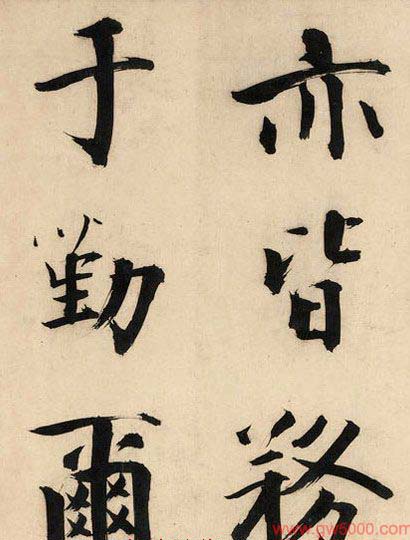 亦皆務
于勤爾
www.gw5000.com